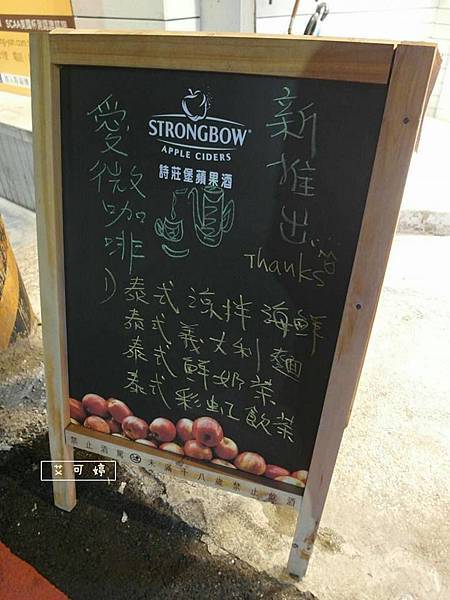 SCAA美國
STRONGBOW®
APPLE CIDERS
詩莊堡蘋果酒
愛微咖啡
新推出...
Thanks
泰式涼拌海鮮
泰式義大利麵
泰式鮮奶茶
泰式彩虹飲茶
禁止酒駕 未滿十八歲禁止飲酒
艾可婷